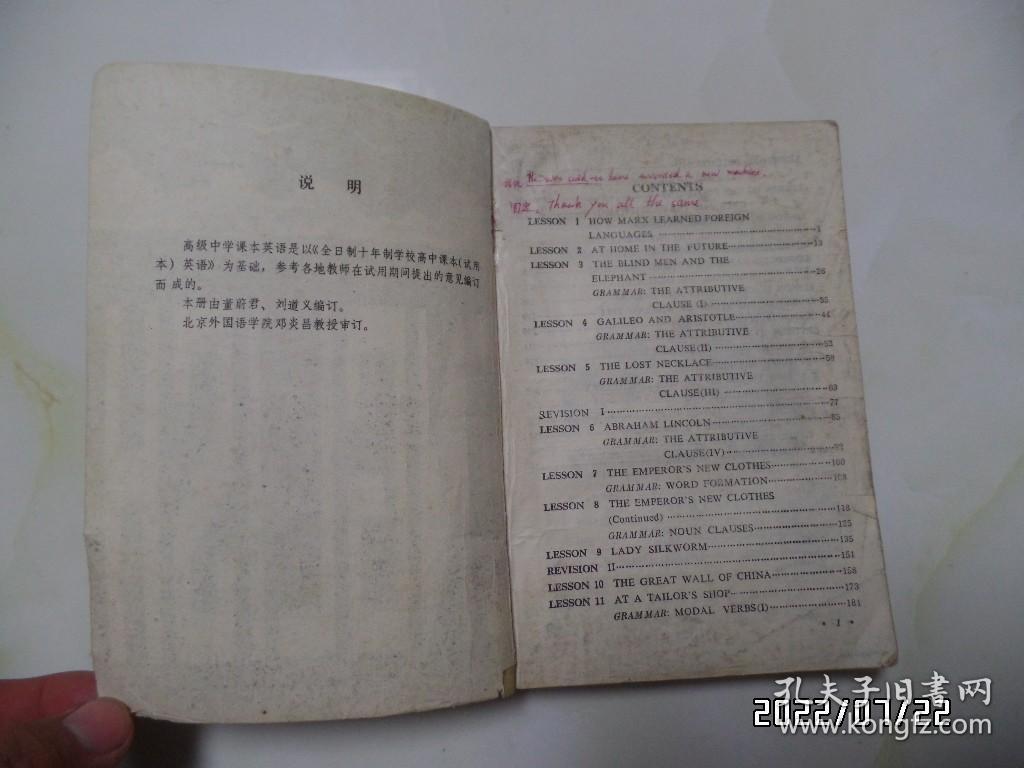 说 明
高级中学课本英语是以《全日制十年制学校高中课本(试用
本)英语》为基础，参考各地教师在试用期间提出的意见编订
而成的。
本册由董蔚君、刘道义编订。
北京外国语学院邓炎昌教授审订。
He was said to have invented a new machine.
固定. Thank you all the same.
CONTENTS
LESSON 1 HOW MARX LEARNED FOREIGN
LANGUAGES 1
LESSON 2 AT HOME IN THE FUTURE 13
LESSON 3 THE BLIND MEN AND THE
ELEPHANT 26
GRAMMAR: THE ATTRIBUTIVE
CLAUSE (I) 35
LESSON 4 GALILEO AND ARISTOTLE 44
GRAMMAR: THE ATTRIBUTIVE
CLAUSE(II) 53
LESSON 5 THE LOST NECKLACE 59
GRAMMAR: THE ATTRIBUTIVE
CLAUSE(III) 69
REVISION I 77
LESSON 6 ABRAHAM LINCOLN 85
GRAMMAR: THE ATTRIBUTIVE
CLAUSE(IV)
LESSON 7 THE EMPEROR'S NEW CLOTHES 100
GRAMMAR: WORD FORMATION 108
LESSON 8 THE EMPEROR'S NEW CLOTHES
(Continued) 118
GRAMMAR: NOUN CLAUSES 125
LESSON 9 LADY SILKWORM 135
REVISION II 151
LESSON 10 THE GREAT WALL OF CHINA 158
LESSON 11 AT A TAILOR'S SHOP 173
GRAMMAR: MODAL VERBS(I) 181
• 1 •
孔夫子旧书网
2022/07/22
www.kongfz.com